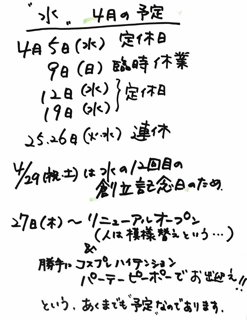 "水" 4月の予定
4月5日(水) 定休日
9日(日) 臨時休業
12日(水)
19日(水) } 定休日
25.26日(火·水) 連休
4/29(祝·土)は水の12回目の
創立記念日のため
27日(木)～リニューアルオープン
(人は模様替えという…)
&
勝手にコスプレハイテンション
パーテーピーポーでお出迎え!!
という、あくまでも予定なのであります。